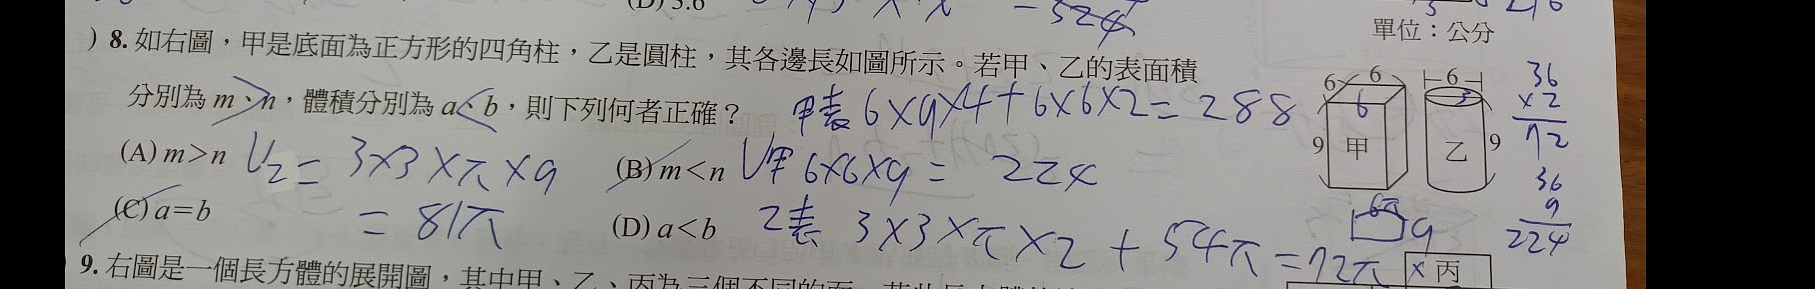 (D) 5.6
324
單位：公分
) 8. 如右圖，甲是底面為正方形的四角柱，乙是圓柱，其各邊長如圖所示。若甲、乙的表面積
分別為 m、n，體積分別為 a、b，則下列何者正確？
甲表 6×9×4+6×6×2=288
(A) m>n
V乙=3×3×π×9
=81π
(B) m<n
V甲 6×6×9=224
(C) a=b
(D) a<b
乙表 3×3×π×2+54π=72π
6 6 6 9 甲
6 3 9 乙
6π 9
36
×2
72
36
9
224
9. 右圖是一個長方體的展開圖，其中甲、乙、丙為三個不同的面
丙